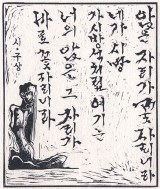 앉은 자리가 꽃자리니라
네가 시방
가시방석처럼 여기는
너의 앉은 그 자리가
바로 꽃자리니라
시 구상